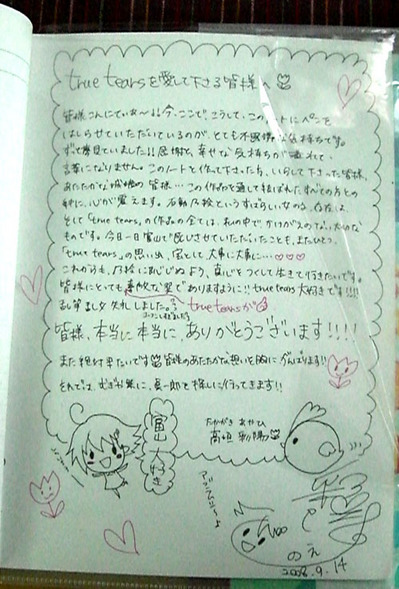 true tearsを愛して下さる皆様へ
皆様こんにちは〜!!今、ここで、こうして、このノートにペンを
はしらせていただいているのが、とても不思議な気持ちです。
ずっと夢見ていました!!感謝と、幸せな気持ちが溢れて、
言葉になりません。このノートを作って下さった方、いらして下さった皆様、
あたたかな城端の皆様…この作品を通して結ばれたすべての方との
絆に、心が震えます。石動乃絵というすばらしい女の子、存在は
そして「true tears」の作品の全ては、私の中でかけがえのない大切な
ものです。今日一日富山で過ごさせていただいたことも、またひとつ、
「true tears」の思い出、宝として大事に大事に…
これからも、乃絵に恥じぬよう、真心をつくして生きて行きたいです。
皆様にとっても素敵な愛でありますように!!true tears大好きです!!!
乱筆乱文失礼しました。
true tearsが
皆様、本当に本当に、ありがとうございます!!!!
また絶対来たいです 皆様のあたたかな想いを胸にがんばります!!
それでは、むぎ弁丸に、真一郎を探しに行ってきます!!
富山大好き
たかがき あやひ
高垣 彩陽
と
のえ
2008.9.14